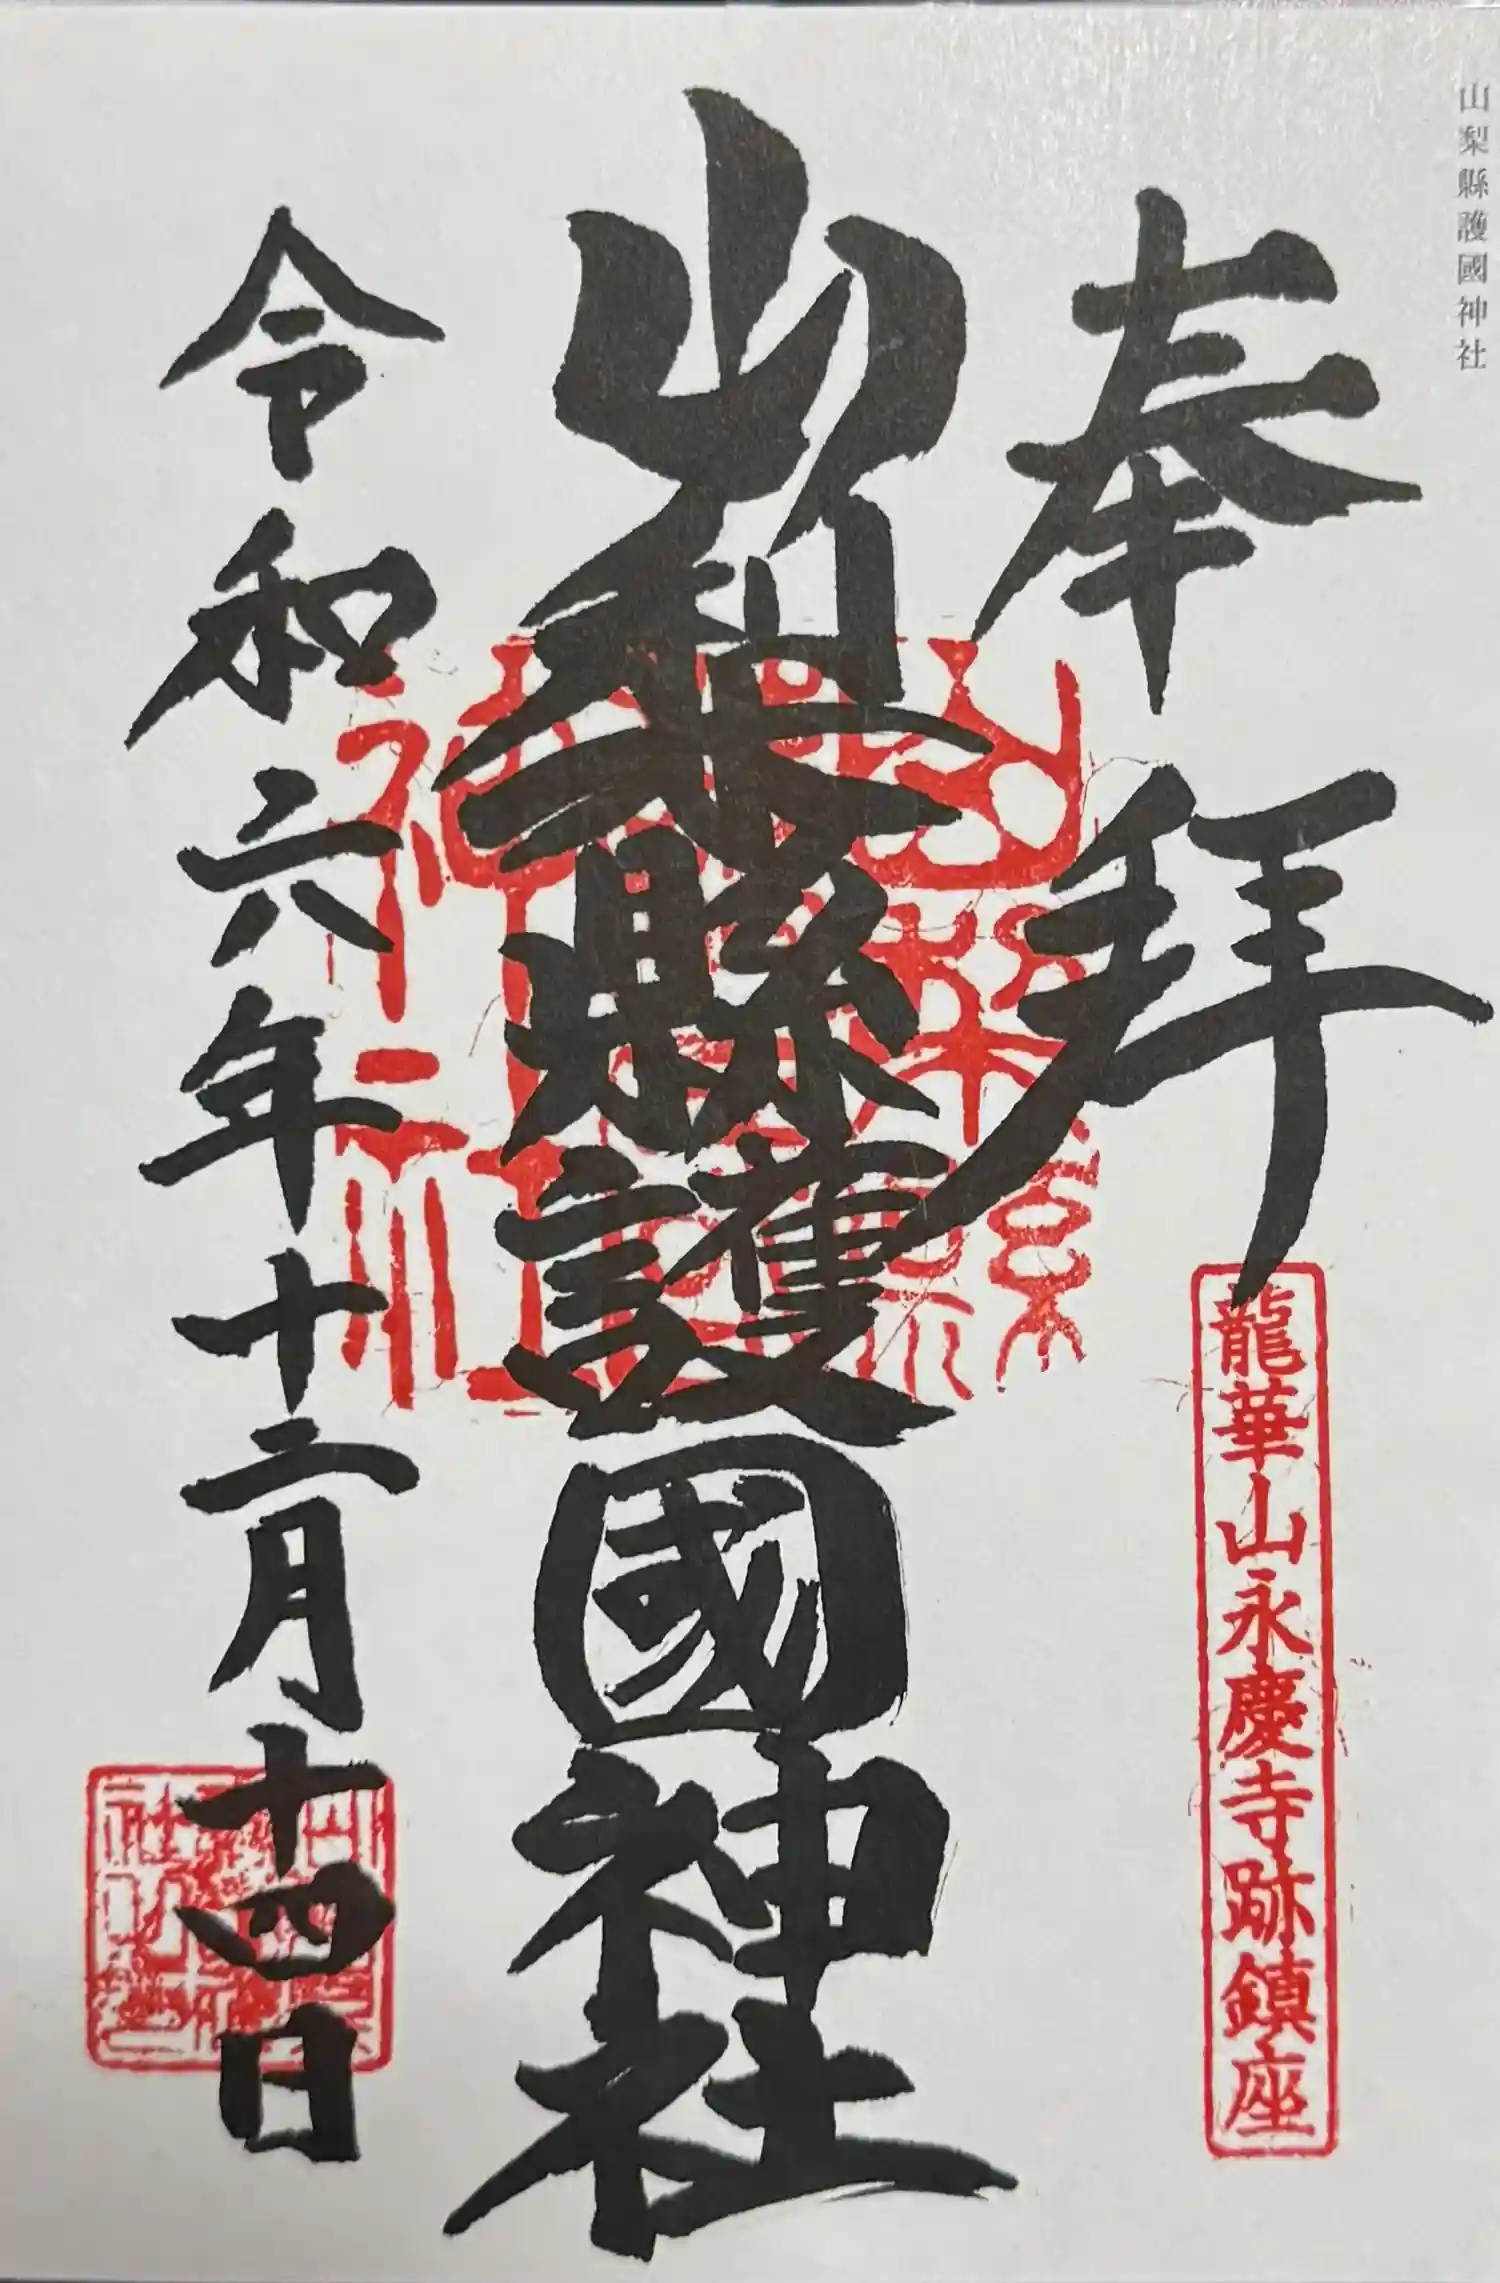 山梨縣護國神社
奉拝
龍華山永慶寺跡鎮座
山梨縣護國神社
令和六年十二月十四日